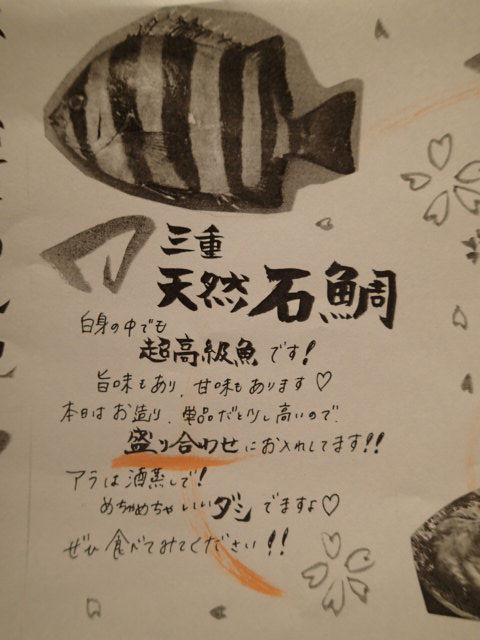 三重
天然石鯛
白身の中でも
超高級魚です!
旨味もあり、甘味もあります♡
本日はお造り、単品だと少し高いので、
盛り合わせにお入れしてます!!
アラは酒蒸しで!
めちゃめちゃいいダシでますよ♡
ぜひ食べてみてください!!